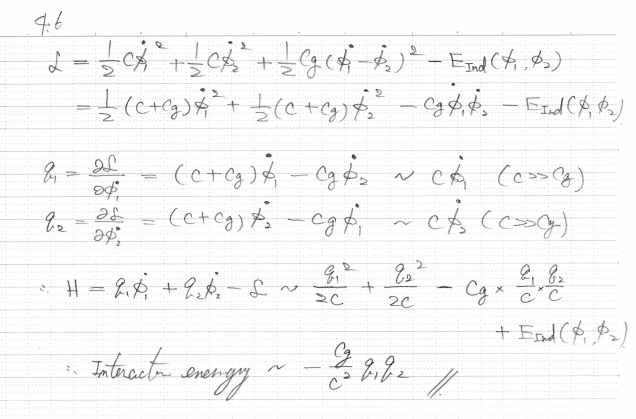 4.6
L = 1/2 Cφ̇₁² + 1/2 Cφ̇₂² + 1/2 Cg(φ̇₁ - φ̇₂)² - E_Ind(φ₁, φ₂)
= 1/2 (C+Cg)φ̇₁² + 1/2 (C+Cg)φ̇₂² - Cgφ̇₁φ̇₂ - E_Ind(φ₁, φ₂)
q₁ = ∂L/∂φ̇₁ = (C+Cg)φ̇₁ - Cgφ̇₂ ~ Cφ̇₁ (C>>Cg)
q₂ = ∂L/∂φ̇₂ = (C+Cg)φ̇₂ - Cgφ̇₁ ~ Cφ̇₂ (C>>Cg)
∴ H = q₁φ̇₁ + q₂φ̇₂ - L ~ q₁²/2C + q₂²/2C - Cg × q₁/C × q₂/C
+ E_Ind(φ₁, φ₂)
∴ Interaction energy ~ - Cg/C² q₁q₂ //